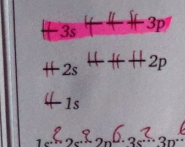 3s 3p
2s 2p
1s
1s² 2s² 2p⁶ 3s² 3p⁶